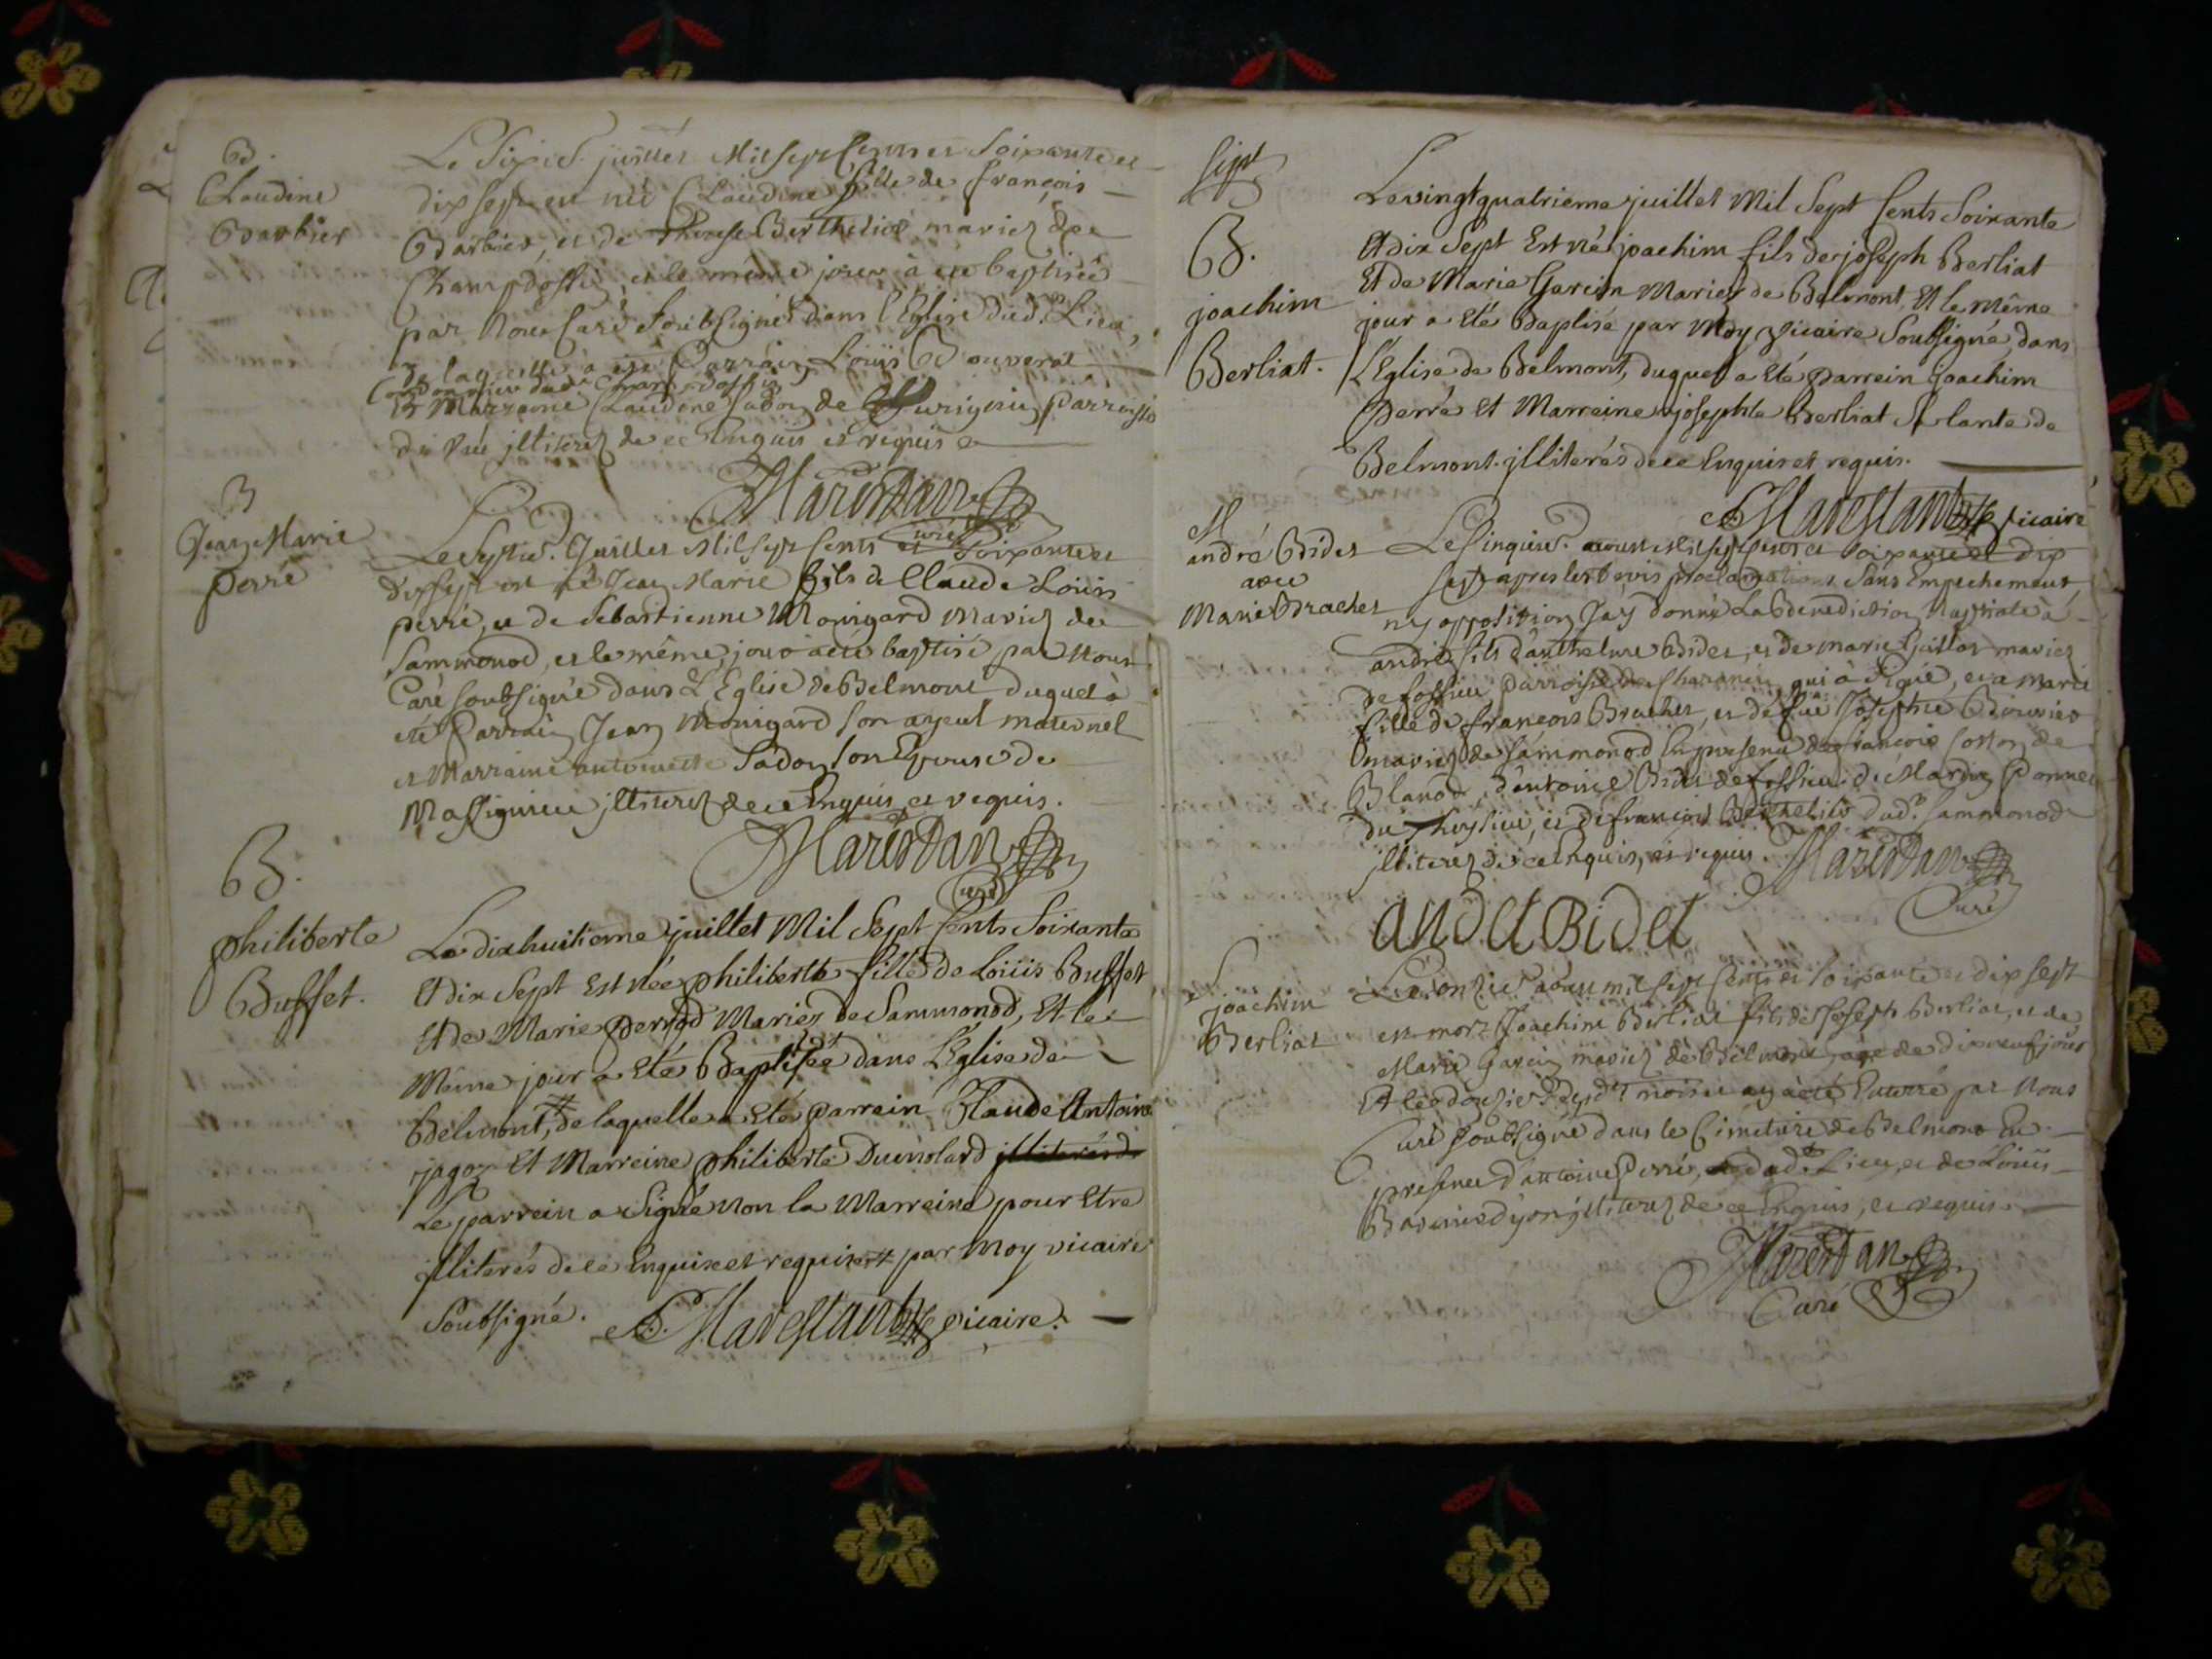 B.
Claudine
Barbier
Le Sixie. juillet Mil sept Cents et Soixante et
dix sept est née Claudine fille de françois
Barbier, et de Therese Berthelier mariez de
Champdossin, et le même jour à été baptisée
par Nous Curé Soubsigné dans l'Eglise dud. Lieu,
de laquelle à été Parrain Loüis Bouverat
Cordonnier dud. Champdossin
Et Marraine Claudine Sadon de Parroisse
de illiterez de ce Enquis et requis
Marestan
Curé
B
Jean Marie
perré
Le Septie. Juillet Mil sept Cents et Soixante et
dix sept est né Jean Marie fils de Claude Loüis
perré, et de Sebastienne Monigard Mariez de
Sammonod, et le même jour à été baptisé par Nous
Curé soubsigné dans L'Eglise de Belmont duquel à
été Parrain Jean Monigard son ayeul maternel
et Marraine antoinette Sadon son Epouse de
Massignieu illiterez de ce Enquis et requis.
Marestan
Curé
B.
philiberte
Buffet.
Le dixhuitieme juillet Mil Sept Cents Soixante
Et dix Sept Est née philiberte fille de Loüis Buffet
Et de Marie perrod Mariez de Sammonod, Et le
Même jour a Eté Baptisée dans L'Eglise de
Belmont, de laquelle a Eté parrein Claude Antoine
jagoz Et Marreine philiberte Dumolard illiterés de
Le parrein a Signé Non la Marreine pour Etre
illiterés de ce Enquise et requise # par Moy vicaire
Soubsigné. Marestan vicaire.
Sept
B.
joachim
Berliat.
Le vingt quatrieme juillet Mil Sept Cents Soixante
Et dix Sept Est né joachim fils de joseph Berliat
Et de Marie Garcin Mariez de Belmont, Et le Même
jour a Eté Baptisé par Moy vicaire Soubsigné, dans
L'Eglise de Belmont, duquel a Eté parrein Joachim
perré Et Marreine josephte Berliat Sa tante de
Belmont. illiterés de ce Enquis et requis.
Marestan vicaire
M
andré Bidet
avec
Marie Bracher
Le Cinquie. aoust Mil sept cents et soixante et dix
sept apres les trois proclamations Sans Empechement,
ny opposition J'ay donné La Benediction Nuptiale à
andré fils d'anthelme Bidet, et de marie Guillot mariez
de fossieu parroisse de Charancin qui à signé, et a marie
fille de françois Bracher, et de füe Josephte Bouvier
mariez de Sammonod En presence de françois de
Blanod, d'antoine Bidet de fossieu, de Martin Ponnet
du Thuysieu, et de françois Berthelier dud. Sammonod
illiterez de ce Enquis, et requis. Marestan
Curé
andet Bidet
joachim
Berliat
Le onzie. aoust mil sept cents et soixante et dix sept
est mort Joachim Berliat fils de Joseph Berliat, et de
Marie Garcin mariez de Belmont, agé de dixneuf jours
Et le douzie. desd. mois et an à été Enterré par Nous
Curé Soubsigné dans le Cimetiere de Belmont En
presence d'antoine Perré, dud. Lieu, et de Loüis
illiterez de ce Enquis, et requis.
Marestan
Curé